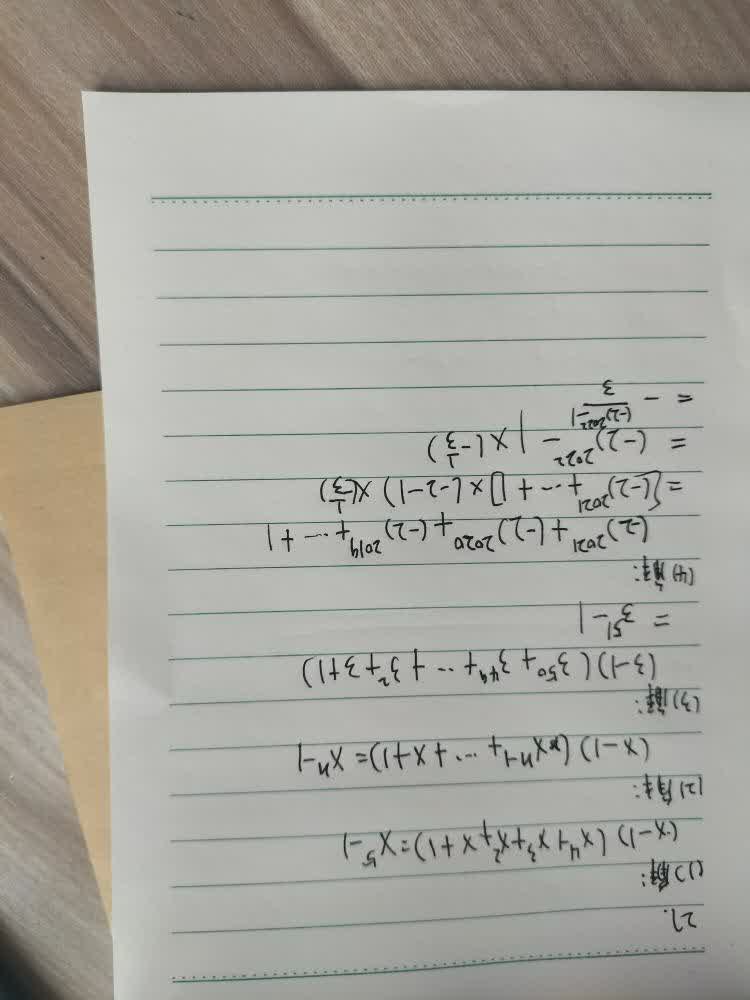 27.
(1)解:
(x-1)(x⁴+x³+x²+x+1)=x⁵-1
(2)解:
(x-1)(xⁿ⁻¹+…+x+1)=xⁿ-1
(3)解:
(3-1)(3⁵⁰+3⁴⁹+…+3²+3+1)
=3⁵¹-1
(4)解:
(-2)²⁰²¹+(-2)²⁰²⁰+(-2)²⁰¹⁹+…+1
=[(-2)²⁰²¹+…+1]×(-2-1)×(-1/3)
=(-2)²⁰²²-1×(-1/3)
=-((-2)²⁰²²-1)/3